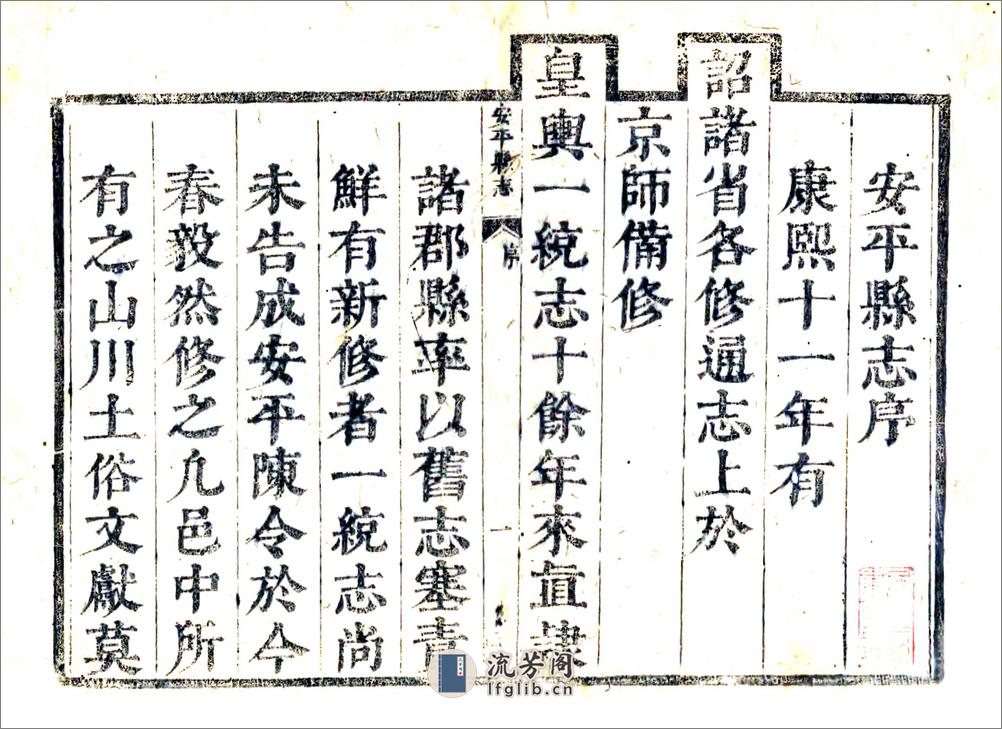 安平縣志序
康熙十一年有
詔諸省各修通志上於
京師備修
皇輿一統志十餘年來直隷
安平縣志
序
一
諸郡縣率以舊志塞責
鮮有新修者一統志尚
未告成安平陳令於今
春毅然修之凢邑中所
有之山川土俗文獻莫
流芳阁
lfglib.cn